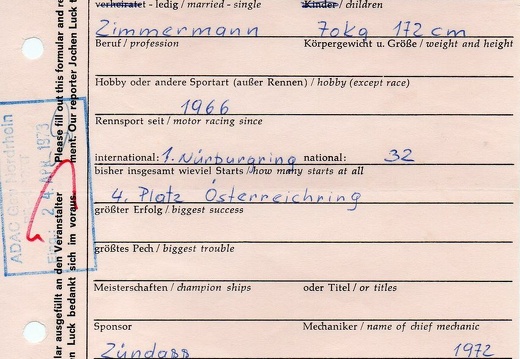 verheiratet - ledig / married - single Kinder / children
Zimmermann 70kg 172cm
Beruf / profession Körpergewicht u. Größe / weight and height
Hobby oder andere Sportart (außer Rennen) / hobby (except race)
1966
Rennsport seit / motor racing since
international: 1. Nürburgring national: 32
bisher insgesamt wieviel Starts / how many starts at all
4. Platz Österreichring
größter Erfolg / biggest success
größtes Pech / biggest trouble
Meisterschaften / champion ships oder Titel / or titles
Sponsor Mechaniker / name of chief mechanic
Zündapp 1972
Please fill out this formular and
ment. Our reporter Jochen Luck
lar ausgefüllt an den Veranstalter
en Luck bedankt sich im voraus.
ADAC Gau Nordrhein
2 4. APR. 1973